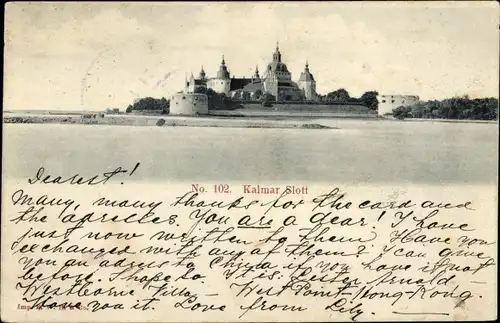 Dearest!
No. 102. Kalmar Slott
Many, many thanks for the card and
the adresses. You are a dear! I have
just now written to them. Have you
exchanged with any of them? I can give
you an adress China if you have it not
before. I hope so. It is: Arnold –
Westborne Villa – West Point, Hong-Kong.
Have you it. Love from Lily.